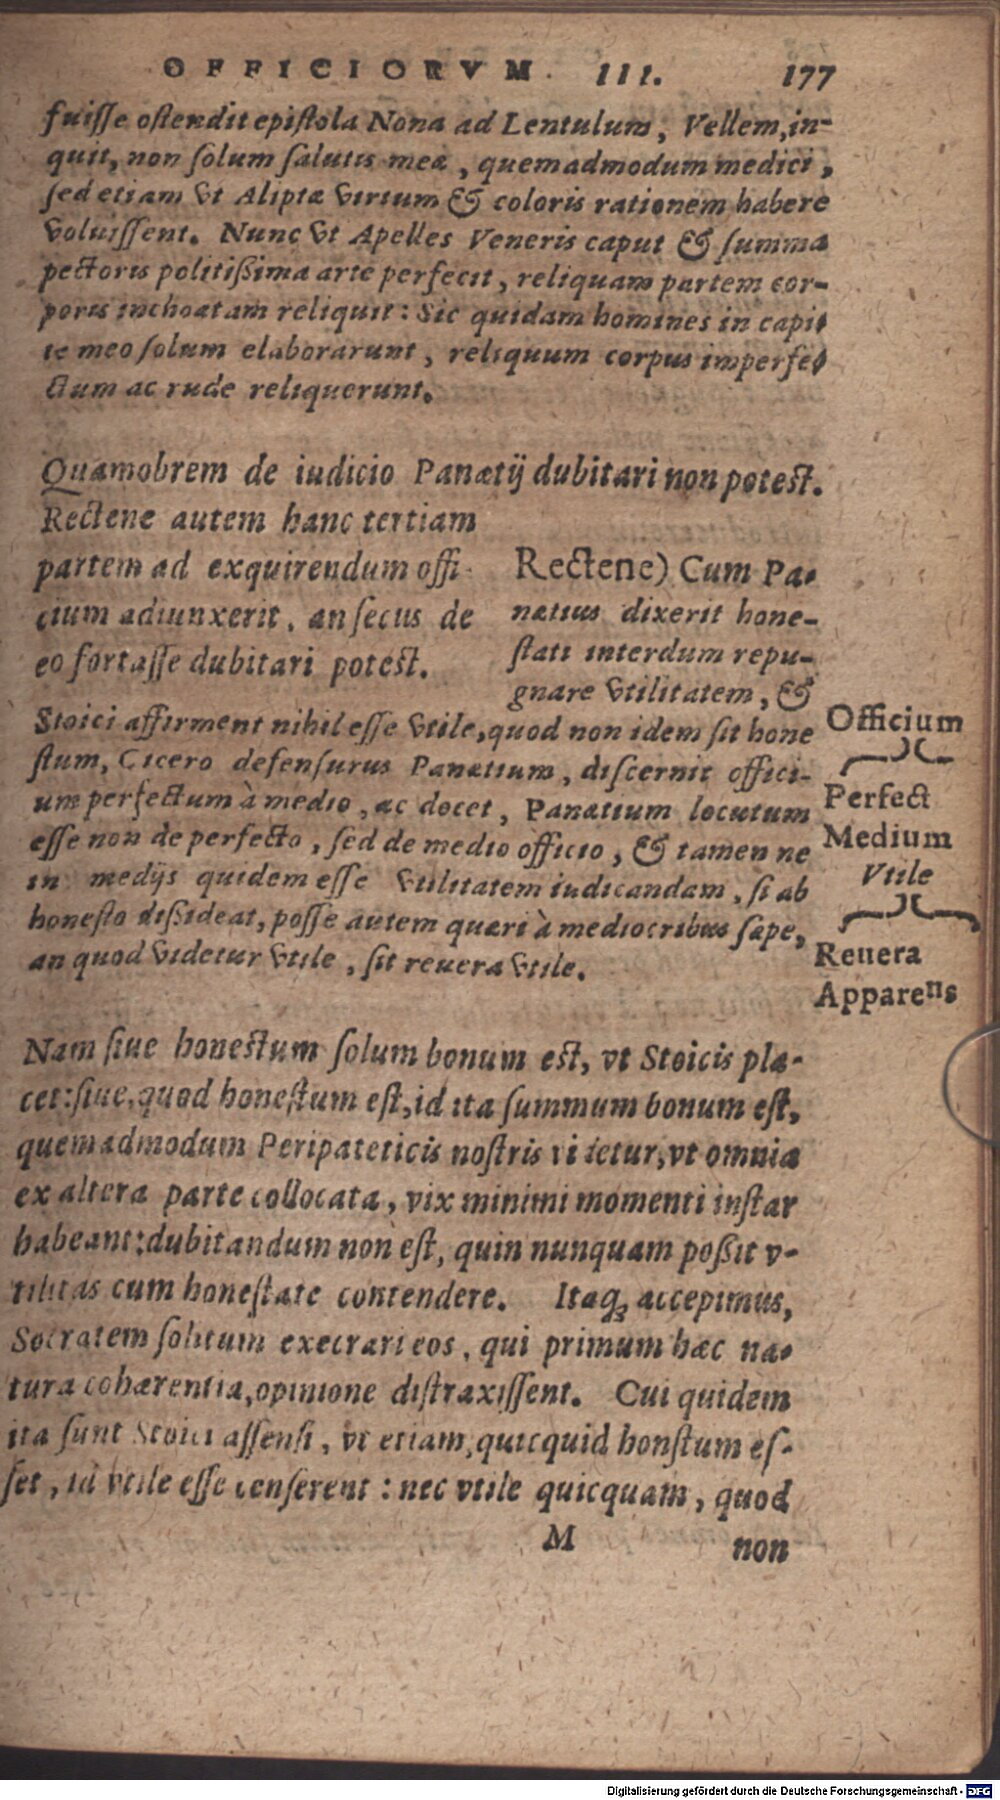 OFFICIORVM. III. 177
fuiſſe oſtendit epiſtola Nona ad Lentulum, Vellem, in-
quit, non ſolum ſalutis meæ, quemadmodum medici,
ſed etiam vt Aliptæ virium & coloris rationem habere
voluiſſent. Nunc vt Apelles Veneris caput & ſumma
pectoris politißima arte perfecit, reliquam partem cor-
poris inchoatam reliquit: Sic quidam homines in capi
te meo ſolum elaborarunt, reliquum corpus imperfe
ctum ac rude reliquerunt.
Quamobrem de iudicio Panætij dubitari non poteſt.
Rectene autem hanc tertiam
partem ad exquirendum offi-
cium adiunxerit, an ſecus de
eo fortaſſe dubitari poteſt.
Rectene) Cum Pa-
nætius dixerit hone-
ſtati interdum repu-
gnare vtilitatem, &
Stoici affirment nihil eſſe vtile, quod non idem ſit hone
ſtum, Cicero defenſurus Panætium, diſcernit offici-
um perfectum à medio, ac docet, Panætium locutum
eſſe non de perfecto, ſed de medio officio, & tamen ne
in medijs quidem eſſe vtilitatem iudicandam, ſi ab
honeſto dißideat, poſſe autem quæri à mediocribus ſæpe,
an quod videtur vtile, ſit reuera vtile.
Officium
Perfect
Medium
Vtile
Reuera
Apparens
Nam ſiue honeſtum ſolum bonum eſt, vt Stoicis pla-
cet: ſiue, quod honeſtum eſt, id ita ſummum bonum eſt,
quemadmodum Peripateticis noſtris videtur, vt omnia
ex altera parte collocata, vix minimi momenti inſtar
habeant: dubitandum non eſt, quin nunquam poßit v-
tilitas cum honeſtate contendere. Itaqꝫ accepimus,
Socratem ſolitum execrari eos, qui primum hæc na-
tura cohærentia, opinione diſtraxiſſent. Cui quidem
ita ſunt Stoici aſſenſi, vt etiam, quicquid honſtum eſ-
ſet, id vtile eſſe cenſerent: nec vtile quicquam, quod
M non
Digitalisierung gefördert durch die Deutsche Forschungsgemeinschaft - DFG